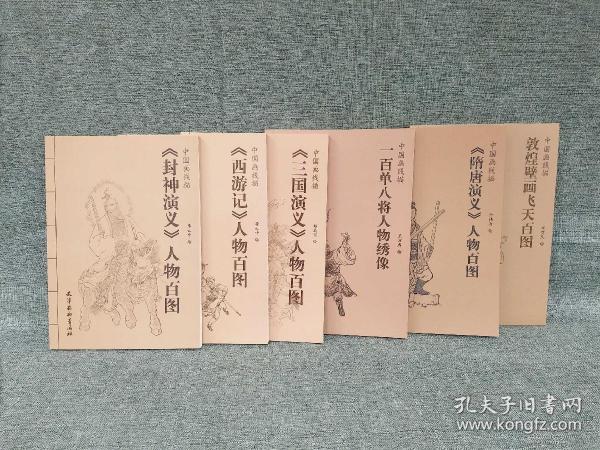 中国画线描
《封神演义》人物百图
天津杨柳青画社
中国画线描
《西游记》人物百图
中国画线描
《三国演义》人物百图
中国画线描
一百单八将人物绣像
中国画线描
《隋唐演义》人物百图
中国画线描
敦煌壁画飞天百图
孔夫子旧书网
www.kongfz.com